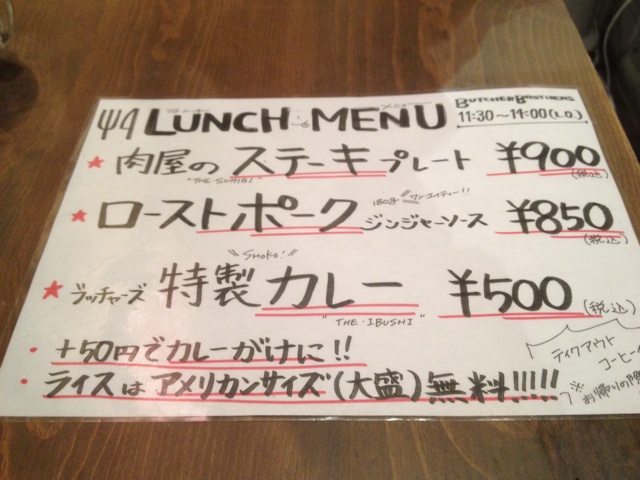 LUNCH MENU
BUTCHER BROTHERS
11:30~14:00(L.O.)
★肉屋のステーキプレート ¥900
(税込)
★ローストポークジンジャーソース ¥850
180g ワンエイティー!!
(税込)
SMOKE!
★ブッチャーズ特製カレー ¥500
(税込)
"THE・IBUSHI"
・+50円でカレーがけに!!
・ライスはアメリカンサイズ(大盛)無料!!!!!
テイクアウト
コーヒー
※お帰りの際